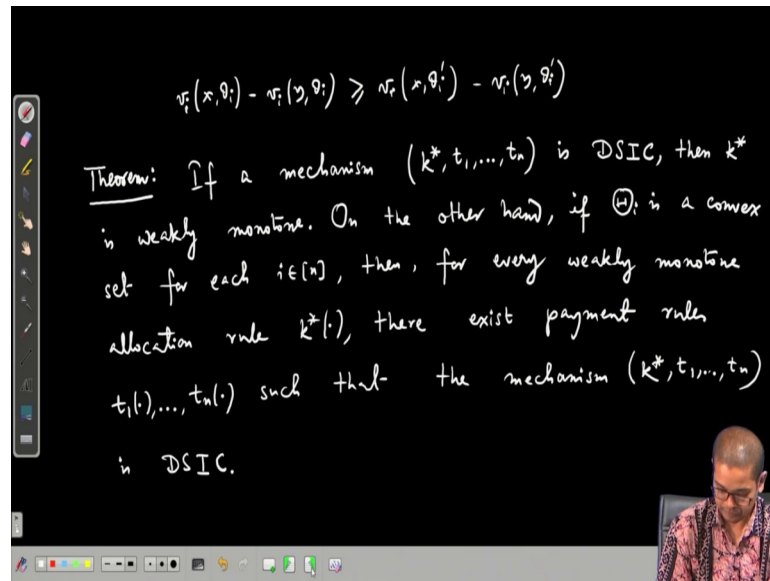 v_i(x,θ_i) - v_i(y,θ_i) ⩾ v_i(x,θ_i') - v_i(y,θ_i')
Theorem: If a mechanism (k*, t_1,...,t_n) is DSIC, then k*
is weakly monotone. On the other hand, if Θ_i is a convex
set for each i∈[n], then, for every weakly monotone
allocation rule k*(·), there exist payment rules
t_1(·),...,t_n(·) such that the mechanism (k*, t_1,...,t_n)
is DSIC.